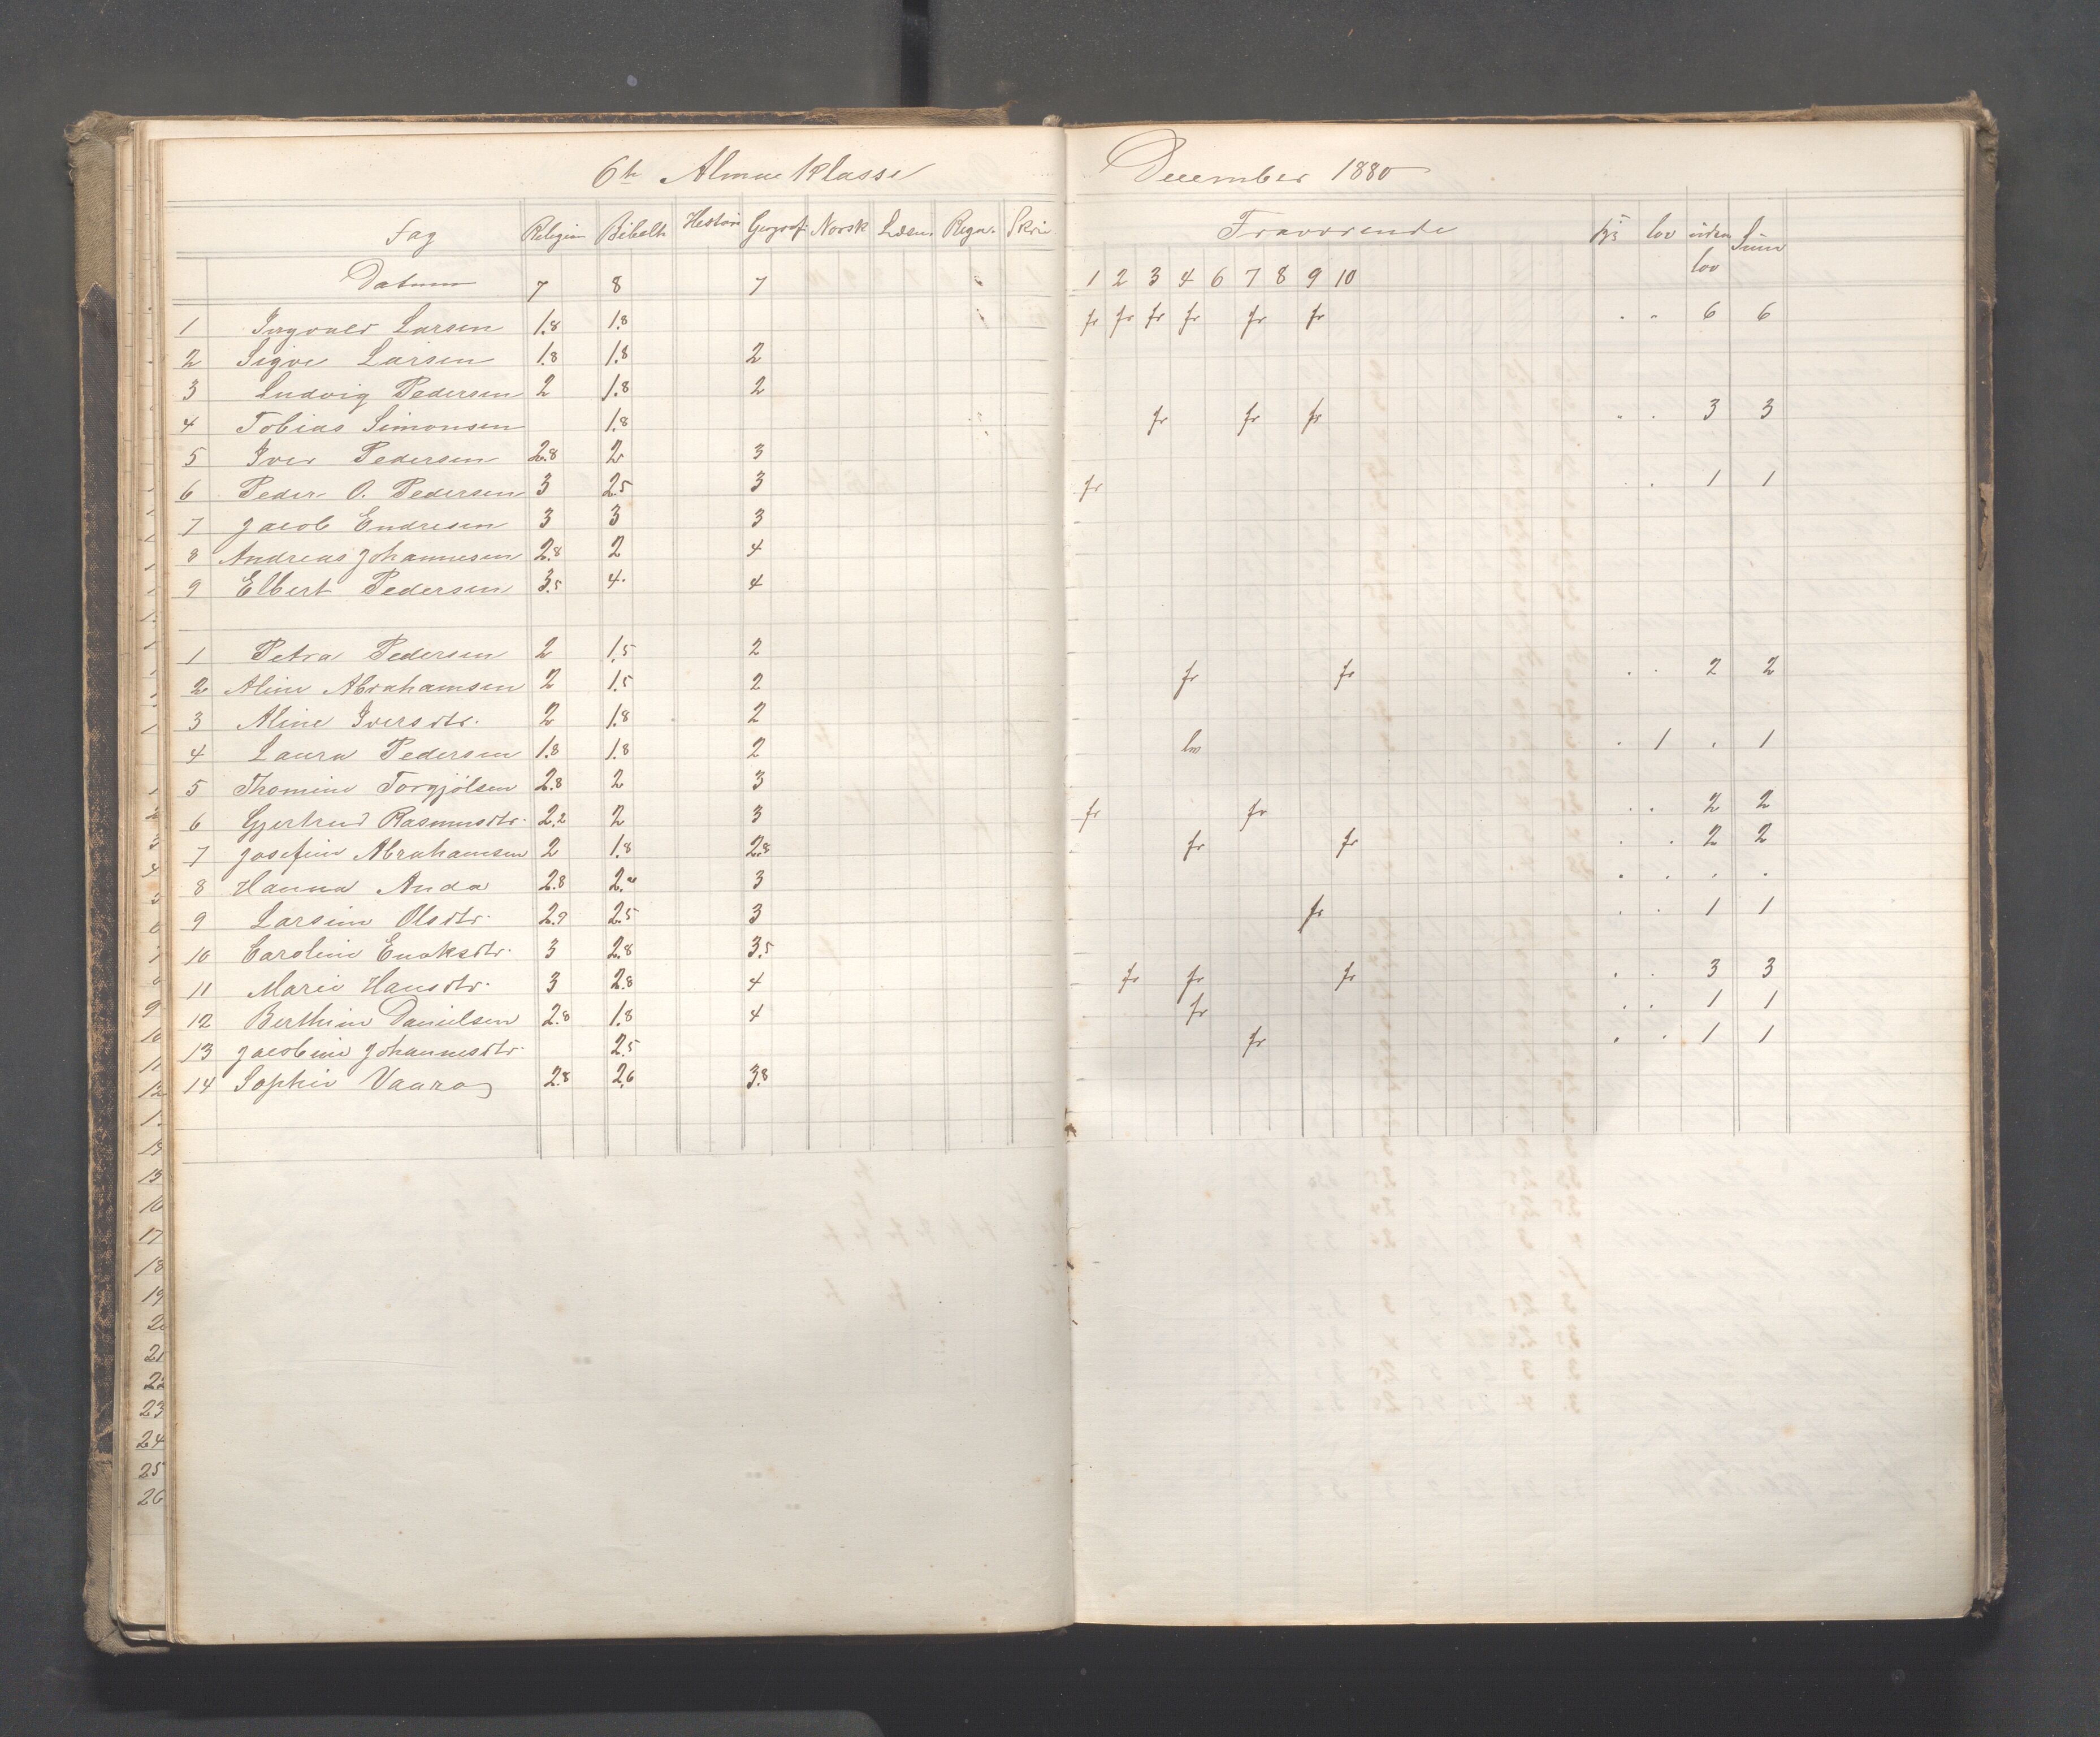 6te Almueklasse
Fag Religion Bibelh Histori Geograf. Norsk Læsn. Regn. Skriv
Datum 7 8 7
1 Ingvald Larsen 1.8 1.8
2 Sigve Larsen 1.8 1.8 2
3 Ludvig Pedersen 2 1.8 2
4 Tobias Simonsen 1.8
5 Iver Pedersen 2.8 2 3
6 Peder O. Pedersen 3 2.5 3
7 Jacob Endresen 3 3 3
8 Andreas Johannesen 2.8 2 4
9 Elbert Pedersen 3.5 4. 4
1 Petra Pedersen 2 1.5 2
2 Aline Abrahamsen 2 1.5 2
3 Aline Iversdtr. 2 1.8 2
4 Laura Pedersen 1.8 1.8 2
5 Thomine Torgjølsen 2.8 2 3
6 Gjertrud Rasmusdtr. 2.2 2 3
7 Josefine Abrahamsen 2 1.8 2.8
8 Hanna Anda 2.8 2. 3
9 Larsine Olsdtr. 2.9 2.5 3
10 Caroline Enoksdtr. 3 2.8 3.5
11 Marie Hansdtr. 3 2.8 4
12 Berthine Danielsen 2.8 1.8 4
13 Jacobine Johannesdtr. 2.5
14 Sophie Vaara 2.8 2.6 3.8
December 1880
Fraværende lov uden lov Sum
1 2 3 4 6 7 8 9 10
fr fr fr fr fr fr . . 6 6
fr fr fr . . 3 3
fr . . 1 1
fr fr . . 2 2
lov . 1 . 1
fr fr . . 2 2
fr fr . . 2 2
. . . .
fr . . 1 1
fr fr fr . . 3 3
fr . . 1 1
fr . . 1 1